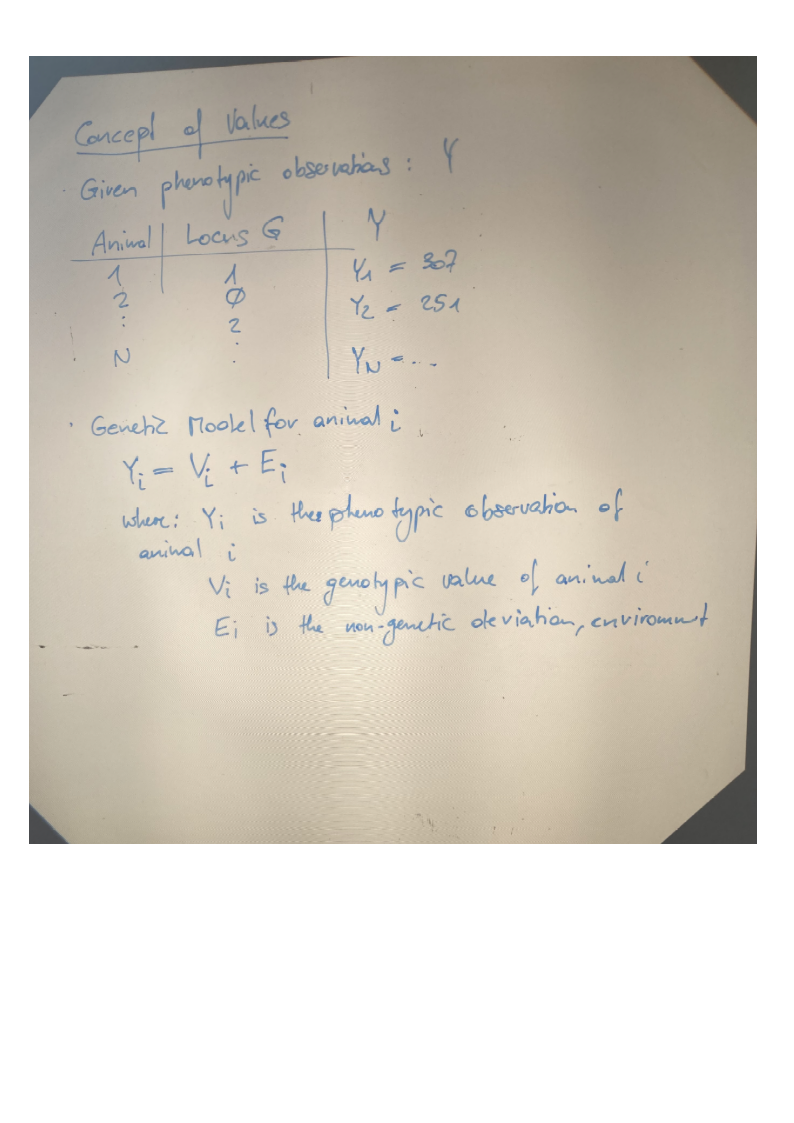 Concept of Values
· Given phenotypic observations : Y
Animal | Locus G | Y
1 | 1 | Y1 = 307
2 | Ø | Y2 = 251
: | 2
N | : | YN = ...
· Genetic Model for animal i
Yi = Vi + Ei
where: Yi is the phenotypic observation of
animal i
Vi is the genotypic value of animal i
Ei is the non-genetic deviation, enviromnt